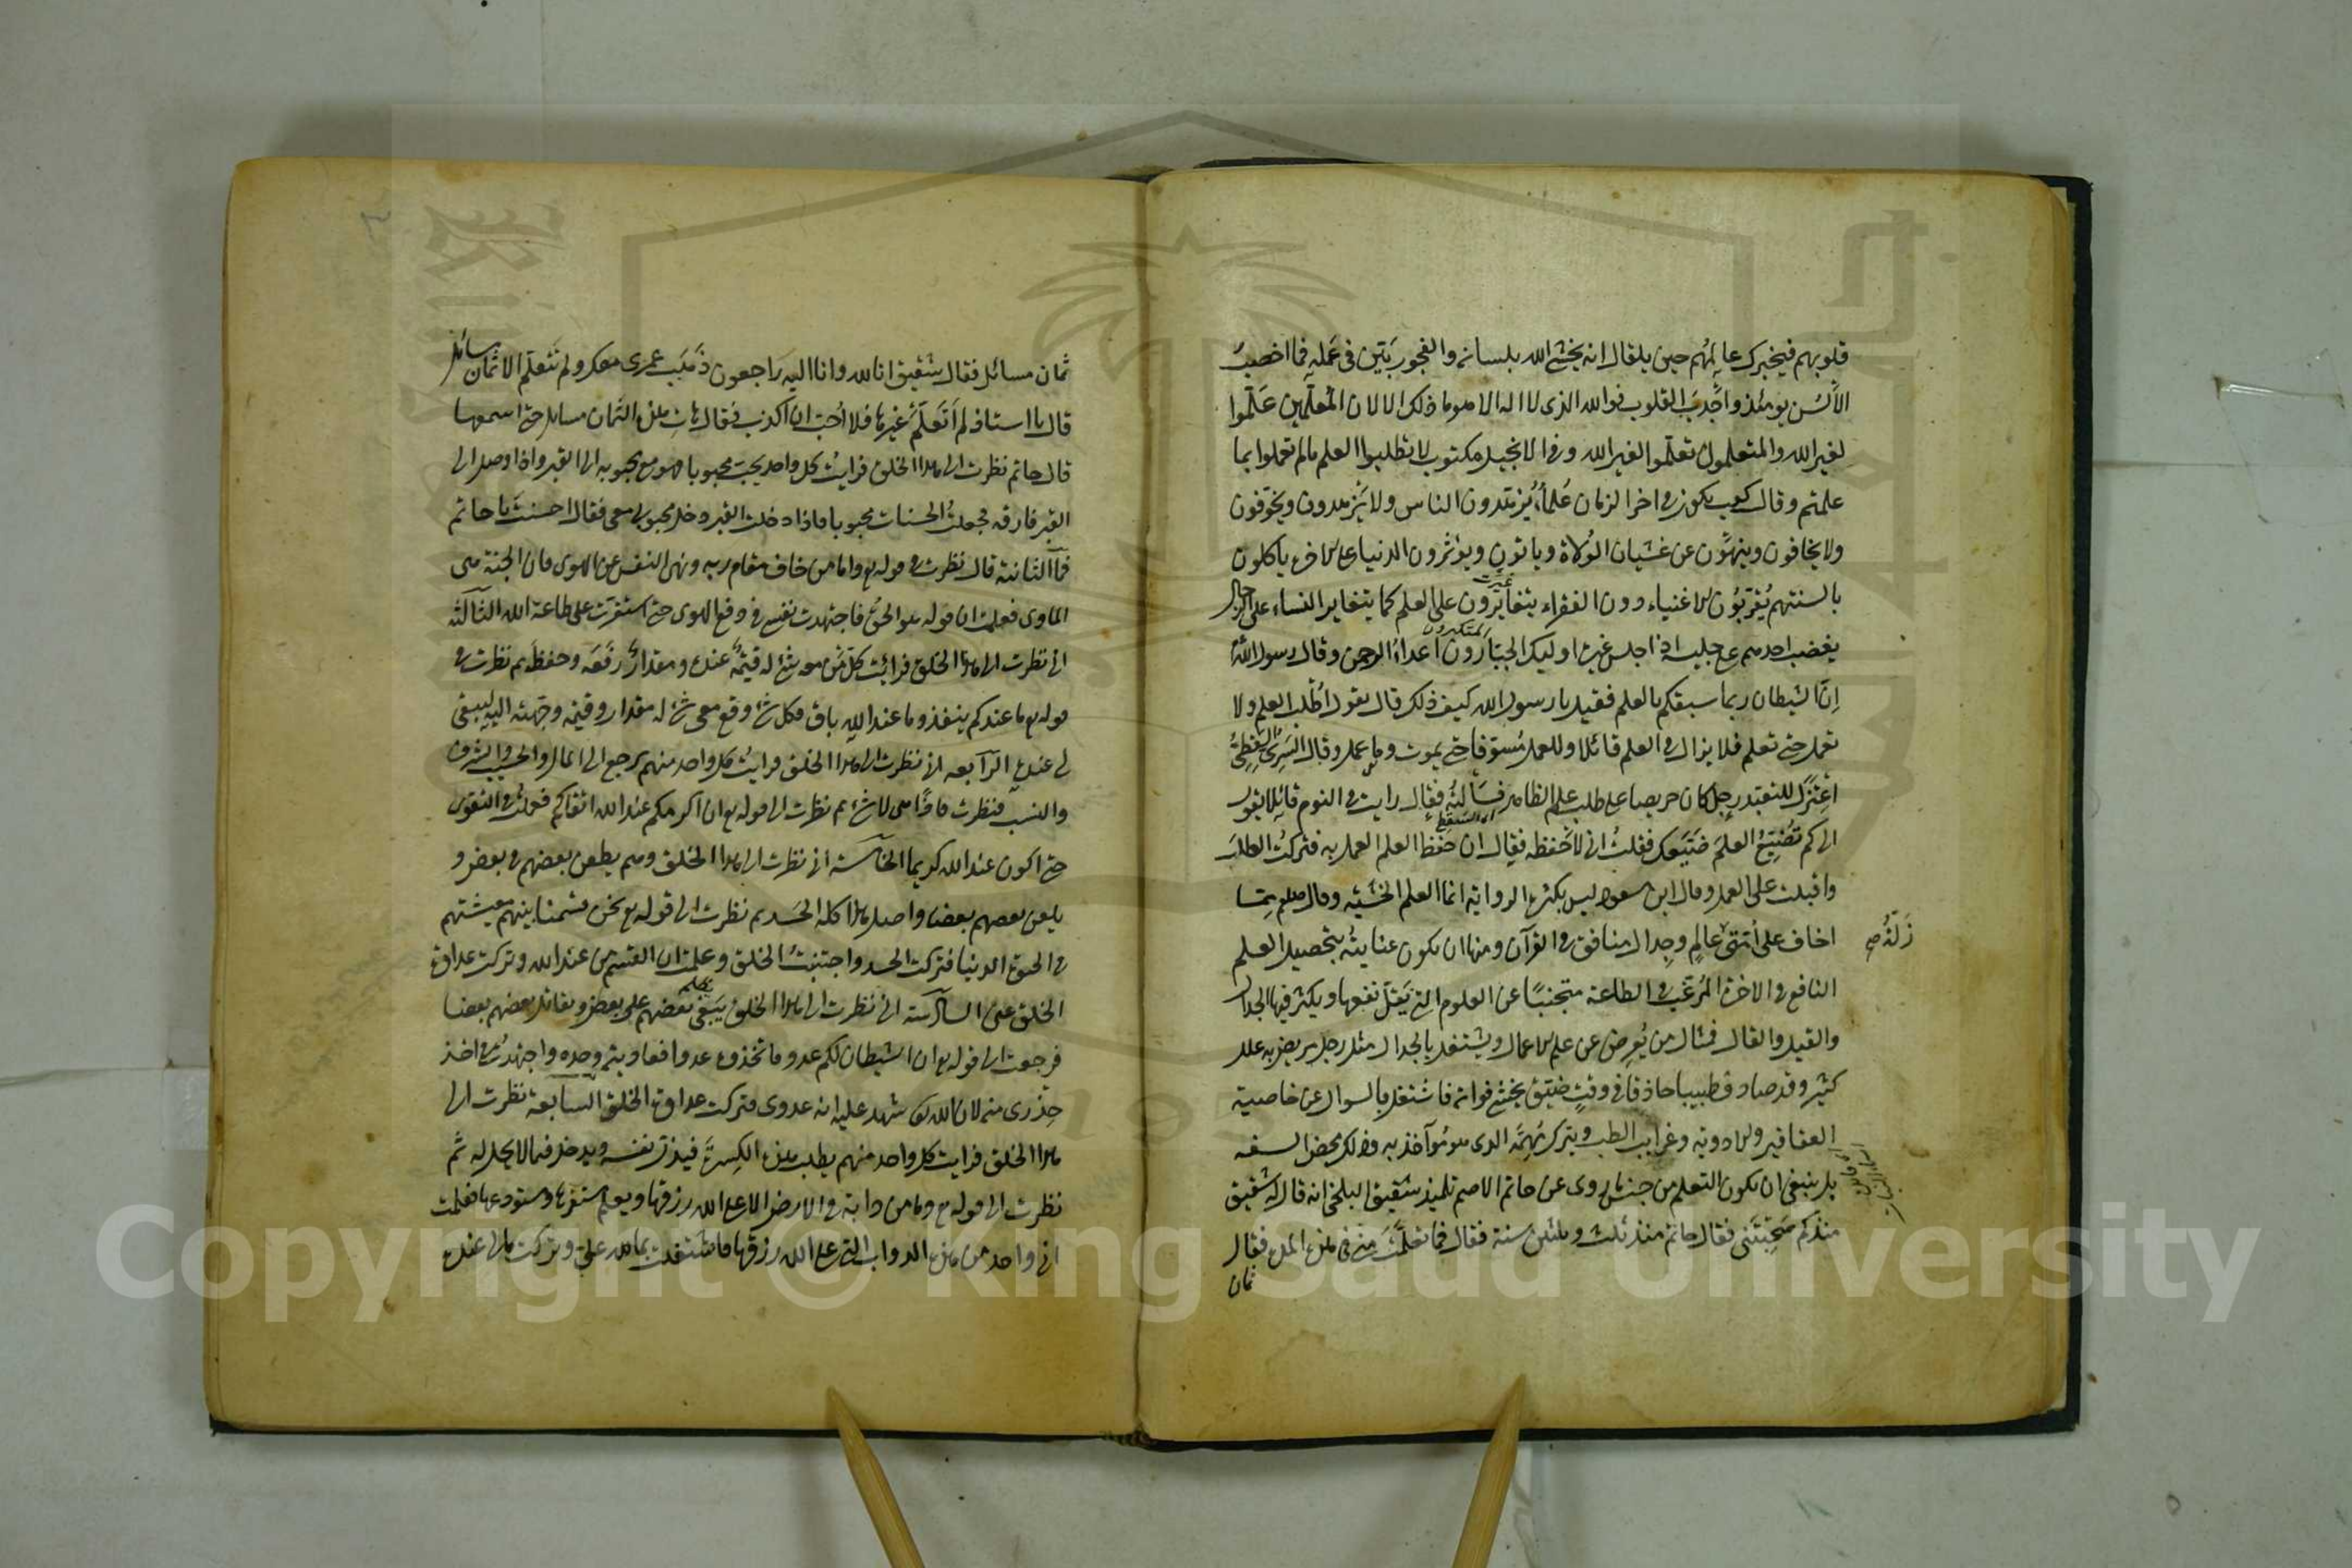 قلوبهم فيخبرك عالمهم حين يلقاك انه يخشى الله بلسانه والفجور يتبين فى عمله فما اخصب
الألسن يومئذ واجدب القلوب فوالله الذى لا اله الا هو ما ذلك الا لان المعلمين علّموا
لغير الله والمتعلمون تعلّموا لغير الله وفى الانجيل مكتوب لا تطلبوا العلم ما لم تعملوا بما
علمتم وقال كعب يكون فى اخر الزمان علماء يزهدون الناس ولا يزهدون ويخوّفون
ولا يخافون وينهون عن غشيان الولاة وياتون ويؤثرون الدنيا على الاخرة ياكلون
بالسنتهم يقرّبون الاغنياء دون الفقراء يتغايرون على العلم كما يتغاير النساء على الرجال
يغضب احدهم على جليسه اذا جلس غيره اوليك الجبّارون اعداء الرحمن وقال رسول الله
المتكبرون
إنّ الشيطان ربما سبقكم بالعلم فقيل يا رسول الله كيف ذلك قال يقول اطلب العلم ولا
تعمل حتى تعلم فلا يزال فى العلم قائلا وللعمل مسوّفا حتى يموت وما عمل وقال السرىّ السقطىّ
اعتزل للتعبد رجل كان حريصا على طلب علم الظاهر فسألته فقال رايت فى النوم قائلا يقول
الى كم تضيّع العلم ضيّعك فقلت انى لأحفظه فقال ان حفظ العلم العمل به فتركت الطلب
واقبلت على العمل وقال ابن مسعود ليس بكثرة الرواية انما العلم الخشية وقال صلعم مما
اخاف على أمّتى عالم وجدال منافق فى القرآن ومنها ان يكون عنايته بتحصيل العلم
زلّة صح
النافع فى الاخرة المرغّب فى الطاعة متجنبًا عن العلوم التى يقلّ نفعها ويكثر فيها الجدال
والقيل والقال فمثال من يعرض عن علم الاعمال ويشتغل بالجدال مثل رجل مريض به علل
كثيرة وقد صادف طبيبا حاذقا فى وقت ضيّق يخشى فواته فاشتغل بالسوال عن خاصية
العقاقير والادوية وغرايب الطب ويترك مهمّه الذى هو مؤآخذ به وذلك محض السفه
بل ينبغى ان يكون التعلم من جنس ما روى عن حاتم الاصم تلميذ شقيق البلخى انه قال له شقيق
منذ كم صحبتنى فقال حاتم منذ ثلث وثلثين سنة فقال فما تعلّمت منى فى هذه المدة فقال
ثمان
ثمان مسائل فقال شقيق انا لله وانا اليه راجعون ذهب عمرى معك ولم تتعلم الا ثمان مسائل
قال يا استاذ لم اتعلّم غيرها فلا أحبّ ان اكذب فقال هات هذه الثمان مسايل حتى اسمعها
قال حاتم نظرت الى هذا الخلق فرايت كل واحد يحبّ محبوبا فهو مع محبوبه الى القبر واذا وصل الى
القبر فارقه فجعلت الحسنات محبوبا فاذا دخلت القبر دخل محبوبى معى فقال احسنت يا حاتم
فما الثانية قال نظرت فى قوله تع واما من خاف مقام ربه ونهى النفس عن الهوى فان الجنة هى
الماوى فعلمت ان قوله هو الحقّ فاجتهدت نفسى فى دفع الهوى حتى استقرت على طاعة الله الثالثة
انى نظرت الى هذا الخلق فرايت كلّ من معه شئ له قيمة عنده ومقدار رفعه وحفظه ثم نظرت فى
قوله تع ما عندكم ينفذ وما عند الله باق فكل شئ وقع معى شئ له مقدار وقيمة وجّهته اليه ليبقى
لى عنده الرابعة انى نظرت الى هذا الخلق فرايت كل واحد منهم يرجع الى المال والحسب والشرف
والنسب فنظرت فاذا هى لا شئ ثم نظرت الى قوله تع ان اكرمكم عند الله اتقاكم فعملت فى التقوى
حتى اكون عند الله كريما الخامسة انى نظرت الى هذا الخلق وهم يطعن بعضهم فى بعض و
يلعن بعضهم بعضا واصل هذا كله الحسد ثم نظرت الى قوله تع نحن قسمنا بينهم معيشتهم
فى الحيوة الدنيا فتركت الحسد واجتنبت الخلق وعلمت ان القسم من عند الله وتركت عداوة
الخلق عنى السادسة انى نظرت الى هذا الخلق يبغى بعضهم على بعض ويقاتل بعضهم بعضا
فرجعت الى قوله تع ان الشيطان لكم عدو فاتخذوه عدوا فعاديته وحده واجتهدت فى اخذ
حذرى منه لان الله تع شهد عليه انه عدوى فتركت عداوة الخلق السابعة نظرت الى
هذا الخلق فرايت كل واحد منهم يطلب هذه الكسرة فيذل نفسه ويدخل فيما لا يحل له ثم
نظرت الى قوله تع وما من دابة فى الارض الا على الله رزقها ويعلم مستقرها ومستودعها فعلمت
انى واحد من هذه الدواب التى على الله رزقها فاشتغلت بما لله علىّ وتركت ما لى عنده
Copyright © King Saud University